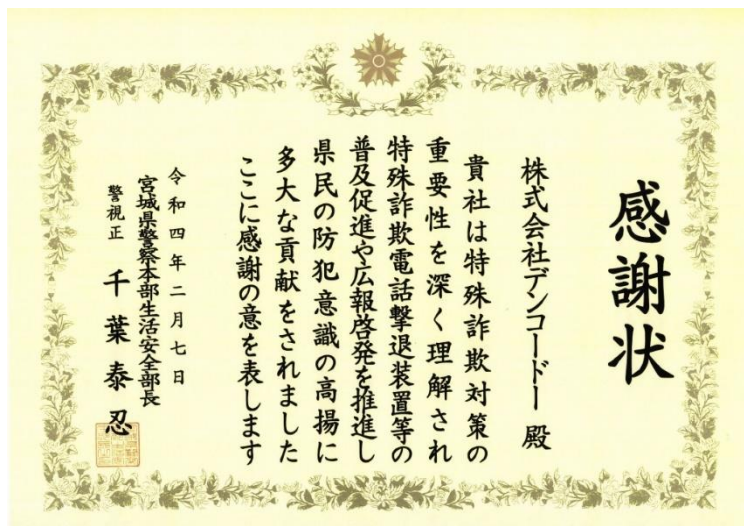 感謝状
株式会社デンコードー 殿
貴社は特殊詐欺対策の
重要性を深く理解され
特殊詐欺電話撃退装置等の
普及促進や広報啓発を推進し
県民の防犯意識の高揚に
多大な貢献をされました
ここに感謝の意を表します
令和四年二月七日
宮城県警察本部生活安全部長
警視正 千葉泰忍